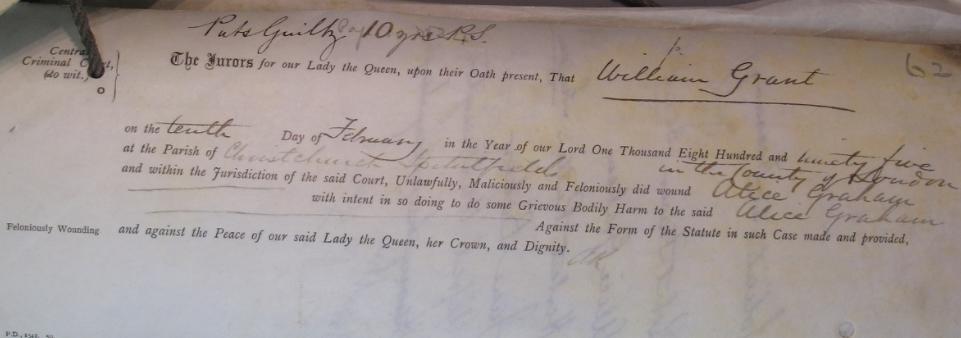 Puts Guilty 10 yrs P.S.
Central Criminal Court, to wit.
The Jurors for our Lady the Queen, upon their Oath present, That William Grant
62
on the tenth Day of February in the Year of our Lord One Thousand Eight Hundred and ninety five
at the Parish of Christchurch Spitalfields in the County of London
and within the Jurisdiction of the said Court, Unlawfully, Maliciously and Feloniously did wound Alice Graham
with intent in so doing to do some Grievous Bodily Harm to the said Alice Graham
Against the Form of the Statute in such Case made and provided,
Feloniously Wounding
and against the Peace of our said Lady the Queen, her Crown, and Dignity.